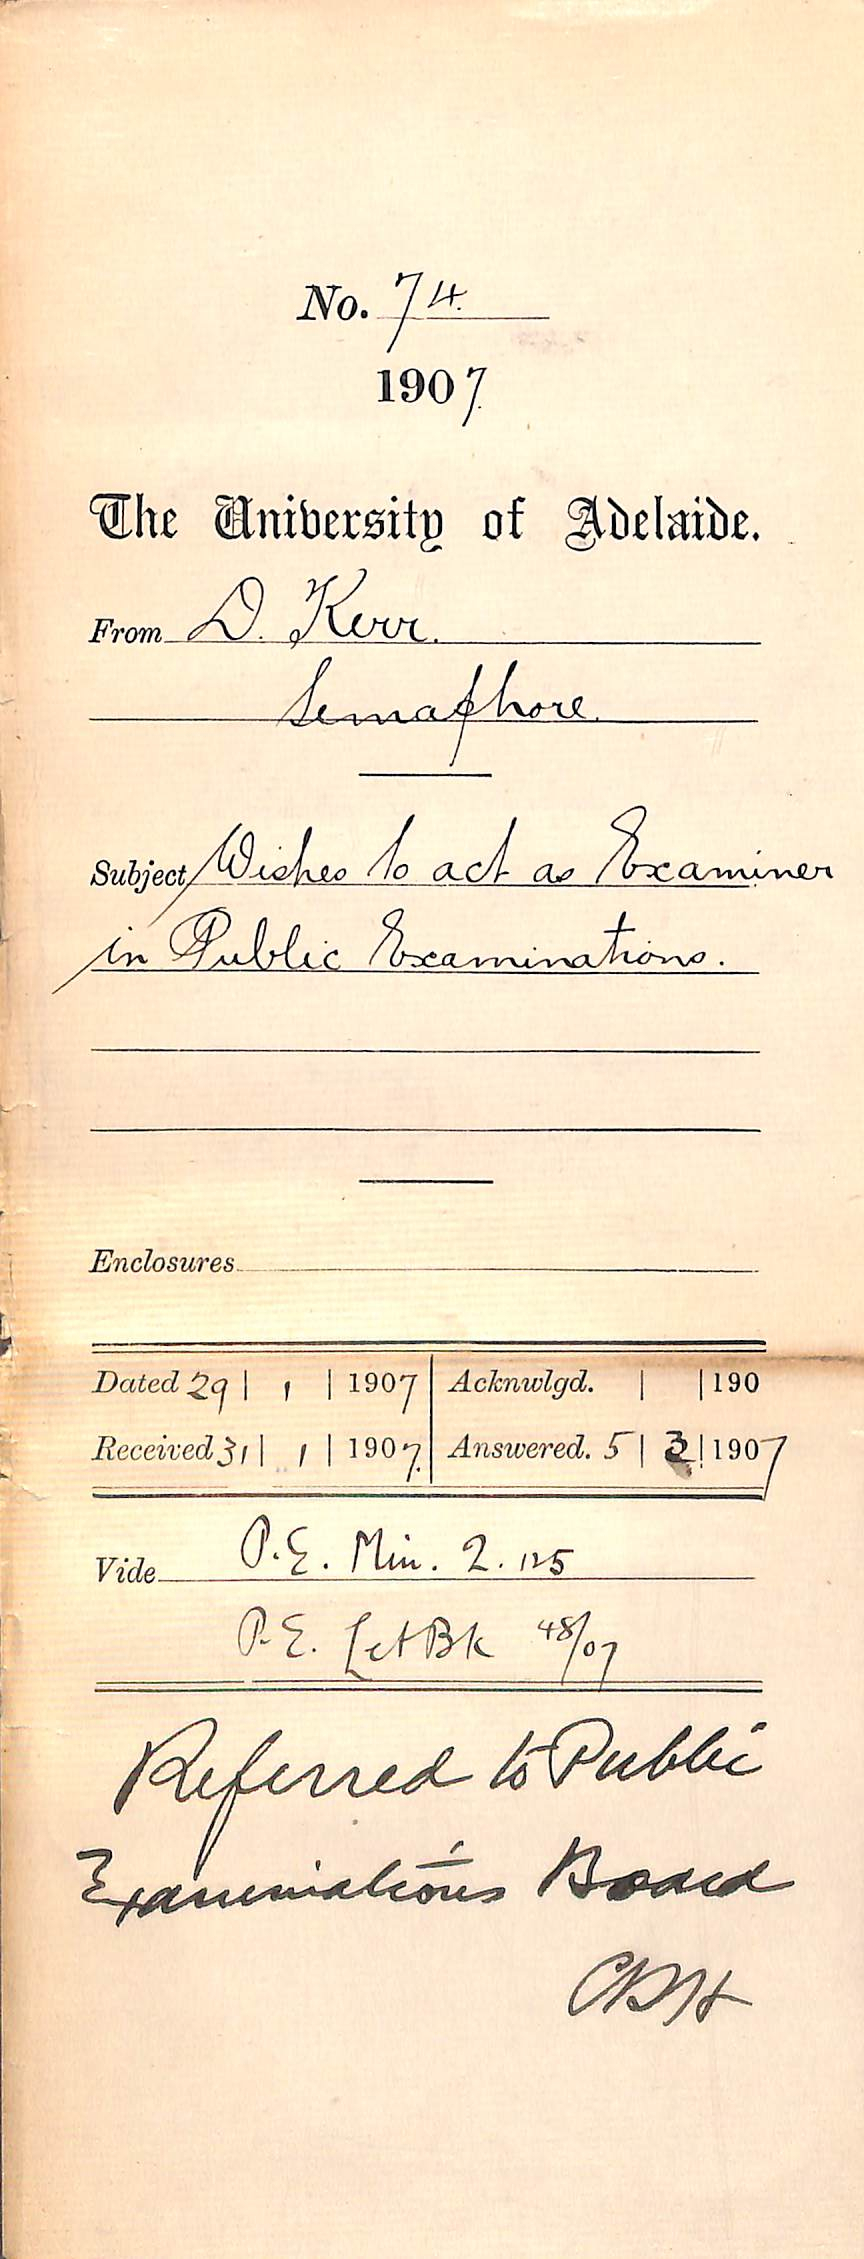 No. 74.
1907.
The University of Adelaide.
From D. Kerr.
Semaphore.
Subject Wishes to act as Examiner
in Public Examinations.
Enclosures
Dated 29 | 1 | 1907 Acknwlgd. | | 190
Received 31 | 1 | 1907. Answered. 5 | 3 | 1907
Vide P.E. Min. 2. 125
P.E. Let Bk 48/07
Referred to Public
Examinations Board
CRH